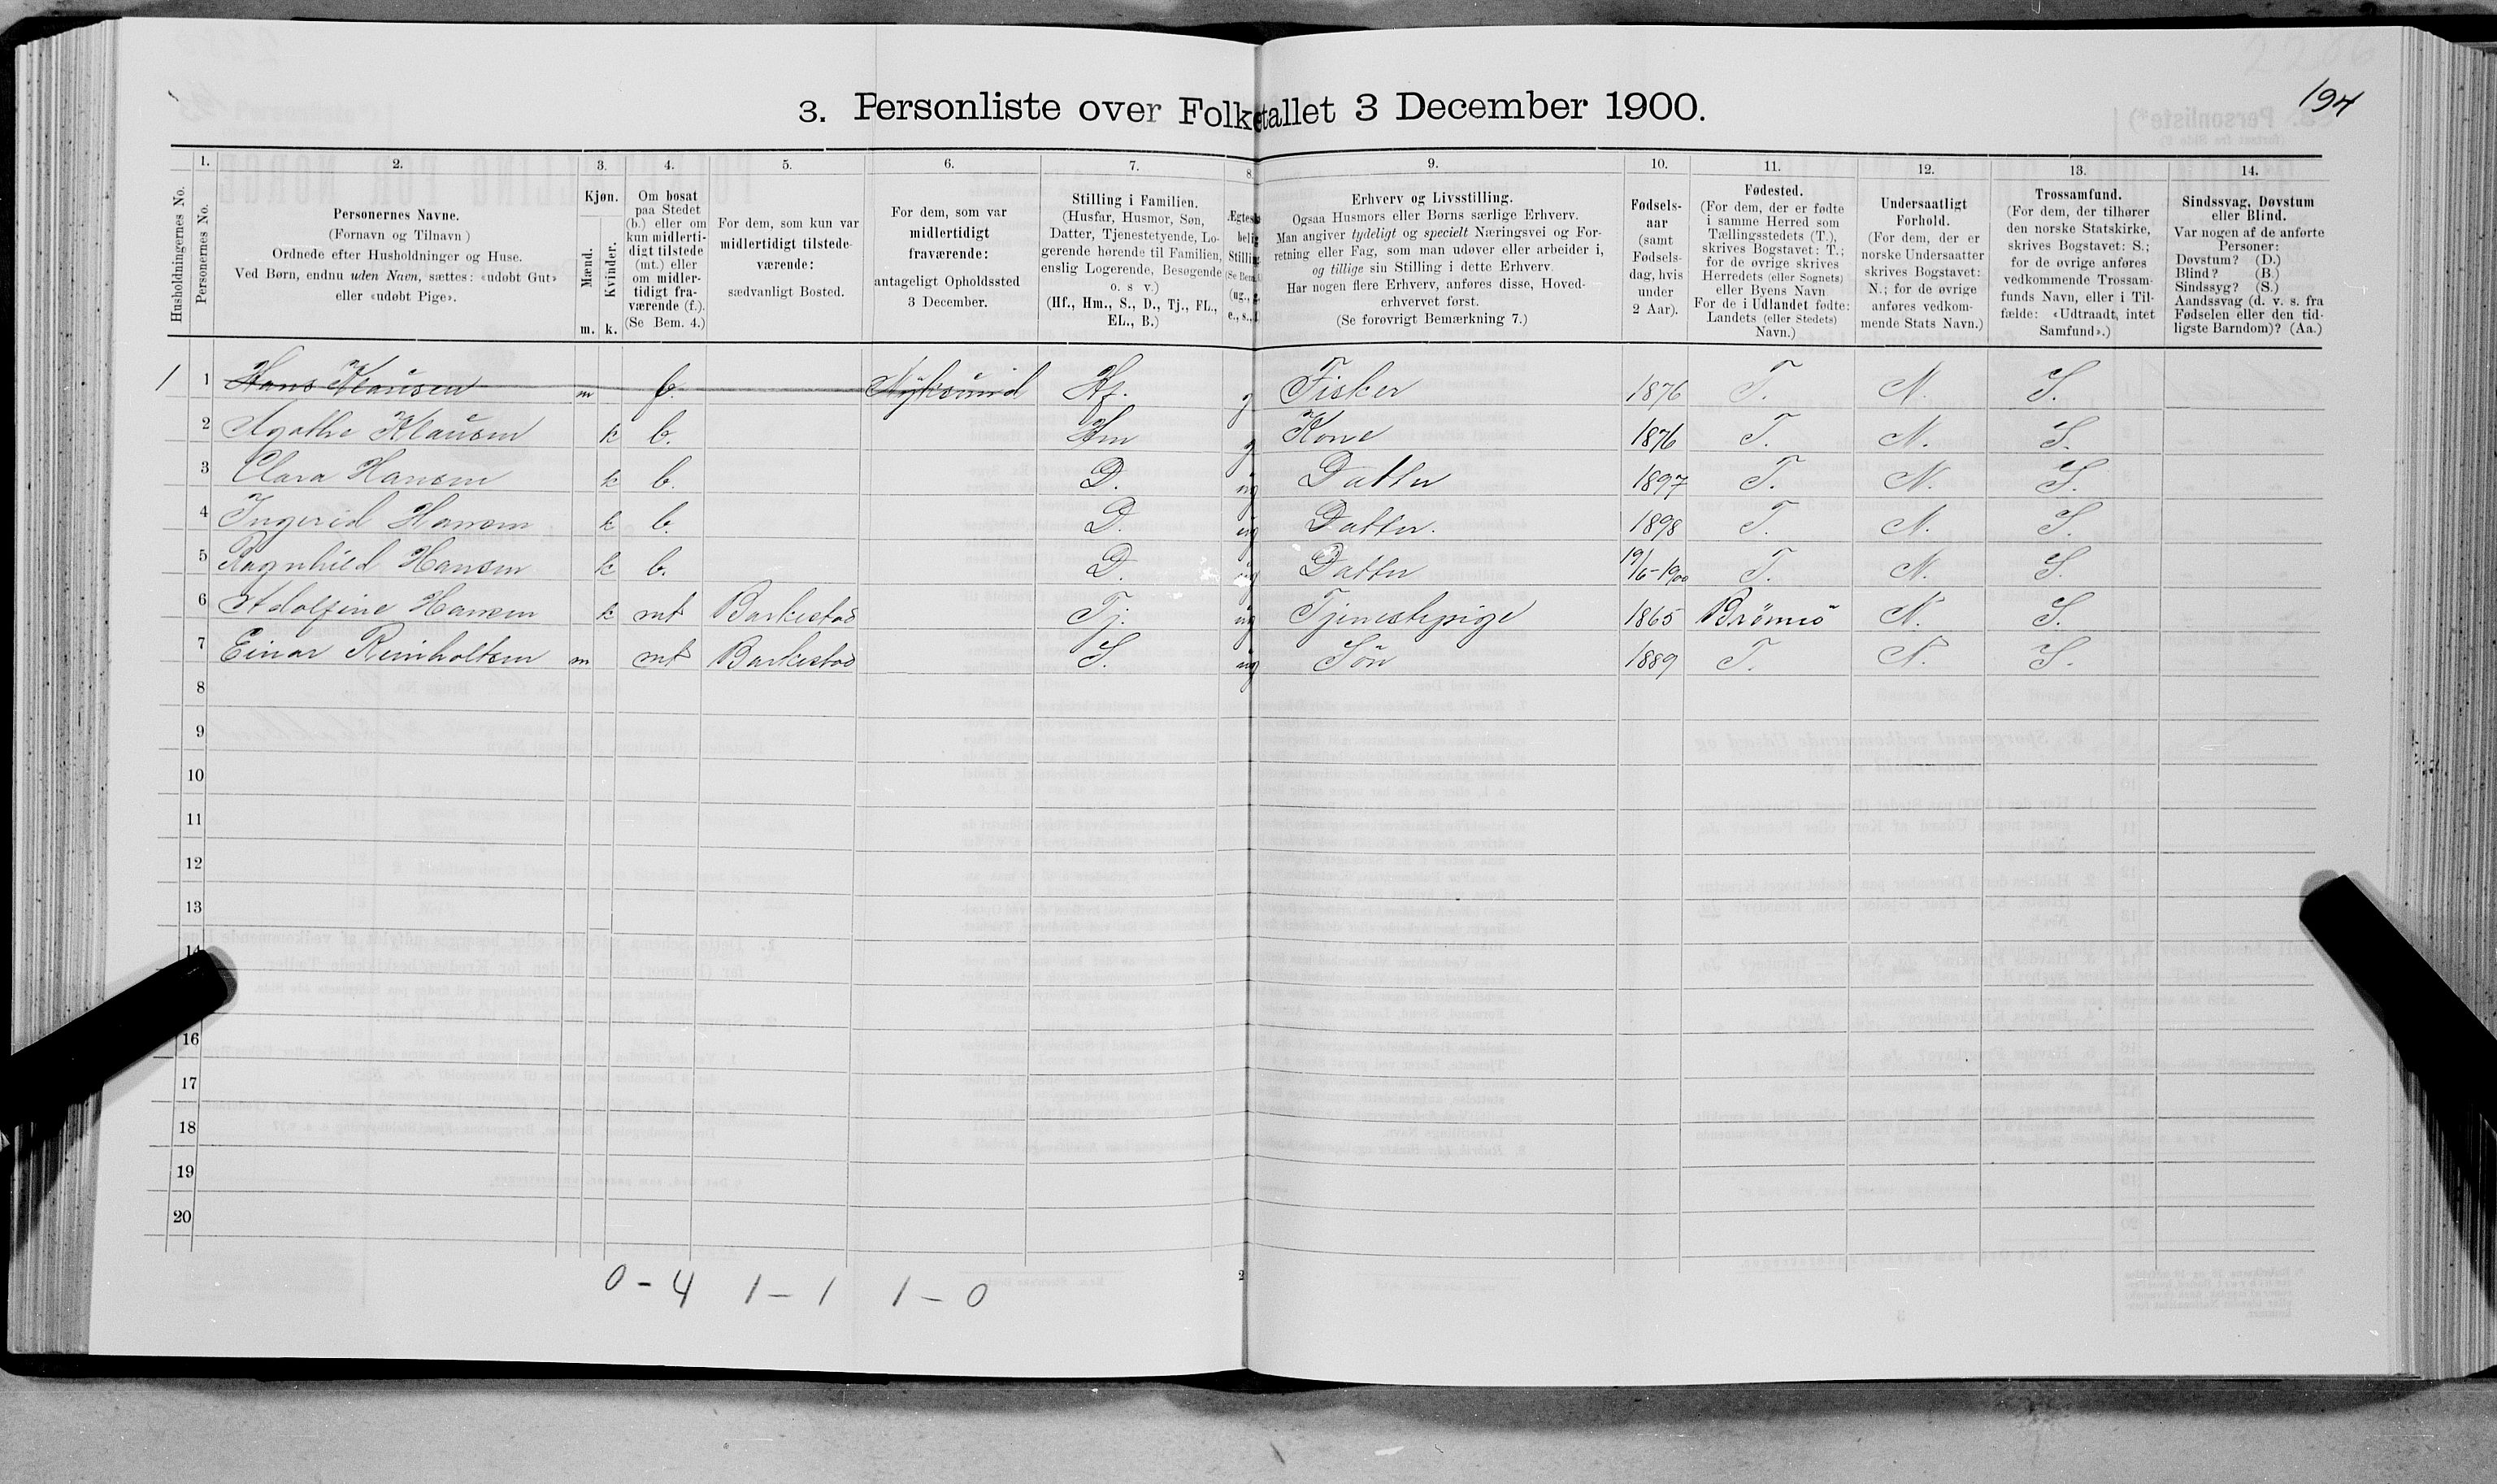 194
3. Personliste over Folketallet 3 December 1900.
1. 2. 3. 4. 5. 6. 7. 8. 9. 10. 11. 12. 13. 14.
Husholdningernes No.
Personernes No.
Personernes Navne.
(Fornavn og Tilnavn)
Ordnede efter Husholdninger og Huse.
Ved Børn, endnu uden Navn, sættes: «udøbt Gut»
eller «udøbt Pige».
Kjøn.
Mænd.
Kvinder.
m. k.
Om bosat
paa Stedet
(b.) eller om
kun midlerti-
digt tilstede
(mt.) eller
om midler-
tidigt fra-
værende (f.).
(Se Bem. 4.)
For dem, som kun var
midlertidigt tilstede-
værende:
sædvanligt Bosted.
For dem, som var
midlertidigt
fraværende:
antageligt Opholdssted
3 December.
Stilling i Familien.
(Husfar, Husmor, Søn,
Datter, Tjenestetyende, Lo-
gerende hørende til Familien,
enslig Logerende, Besøgende
o. s v.)
(Hf., Hm., S., D., Tj., FL.,
EL., B.)
Ægtesk
belig
Stilling
(Se Bem.
(ug., g.
e., s., f.
Erhverv og Livsstilling.
Ogsaa Husmors eller Børns særlige Erhverv.
Man angiver tydeligt og specielt Næringsvei og For-
retning eller Fag, som man udøver eller arbeider i,
og tillige sin Stilling i dette Erhverv.
Har nogen flere Erhverv, anføres disse, Hoved-
erhvervet først.
(Se forøvrigt Bemærkning 7.)
Fødsels-
aar
(samt
Fødsels-
dag, hvis
under
2 Aar).
Fødested.
(For dem, der er fødte
i samme Herred som
Tællingsstedets (T.),
skrives Bogstavet: T.;
for de øvrige skrives
Herredets (eller Sognets)
eller Byens Navn
For de i Udlandet fødte:
Landets (eller Stedets)
Navn.)
Undersaatligt
Forhold.
(For dem, der er
norske Undersaatter
skrives Bogstavet:
N.; for de øvrige
anføres vedkom-
mende Stats Navn.)
Trossamfund.
(For dem, der tilhører
den norske Statskirke,
skrives Bogstavet: S.;
for de øvrige anføres
vedkommende Trossam-
funds Navn, eller i Til-
fælde: «Udtraadt, intet
Samfund».)
Sindssvag, Døvstum
eller Blind.
Var nogen af de anførte
Personer:
Døvstum? (D.)
Blind? (B.)
Sindssyg? (S.)
Aandssvag (d. v. s. fra
Fødselen eller den tid-
ligste Barndom)? (Aa.)
1 1 Hans Klausen m f. Nyksund Hf. g Fisker 1876 T. N. S.
2 Agathe Klausen k b. Hm g Kone 1876 T. N. S.
3 Clara Hansen k b. D. ug Datter 1897 T. N. S.
4 Ingerid Hansen k b. D. ug Datter. 1898 T. N. S.
5 Ragnhild Hansen k b. D. ug Datter 19/6-1900 T. N. S.
6 Adolfine Hansen k mt Barkestad Tj. ug Tjenestepige 1865 Brönnö N. S.
7 Einar Reinholtsen m mt Barkestad S. ug Sön 1889 T. N. S.
8
9
10
11
12
13
14
16
17
18
19
20
0-4 1-1 1-0
2